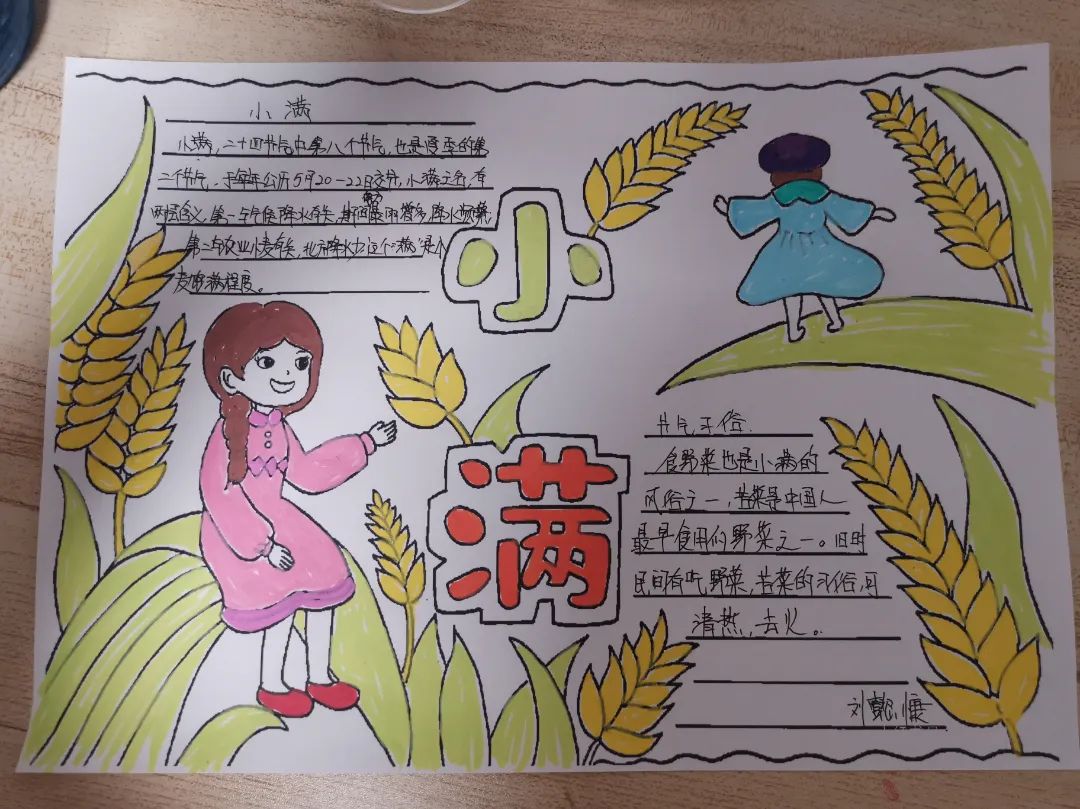 小满
小满,二十四节气中第八个节气,也是夏季的第
二个节气。于每年公历5月20-22日交节,小满之名,有
两层含义,第一与气候降水有关,期间降雨增多,降水频繁
第二与农业小麦有关,北方降水少这个"满"是小
麦的满程度。
小
满
节气习俗.
食野菜也是小满的
风俗之一,苦菜是中国人
最早食用的野菜之一。旧时
民间有吃野菜,苦菜的习俗,可
清热,去火。
刘